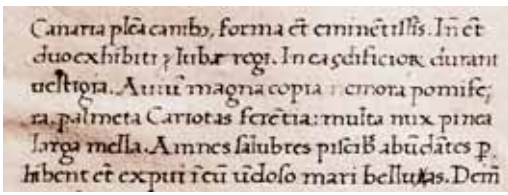 Canaria plēa canibꝫ, forma ēt eminētissīs. In ēt
duo exhibiti ꝫ Iubæ regi. In ea ędificioꝝ durant
uestigia. Auiū magna copia nemora pomife,
ra. palmeta Cariotas ferētia: multa nux pinea
larga mella. Amnes salubres piscibꝫ abūdātes ꝑ
hibent et expui
mari belluas. Dem̄